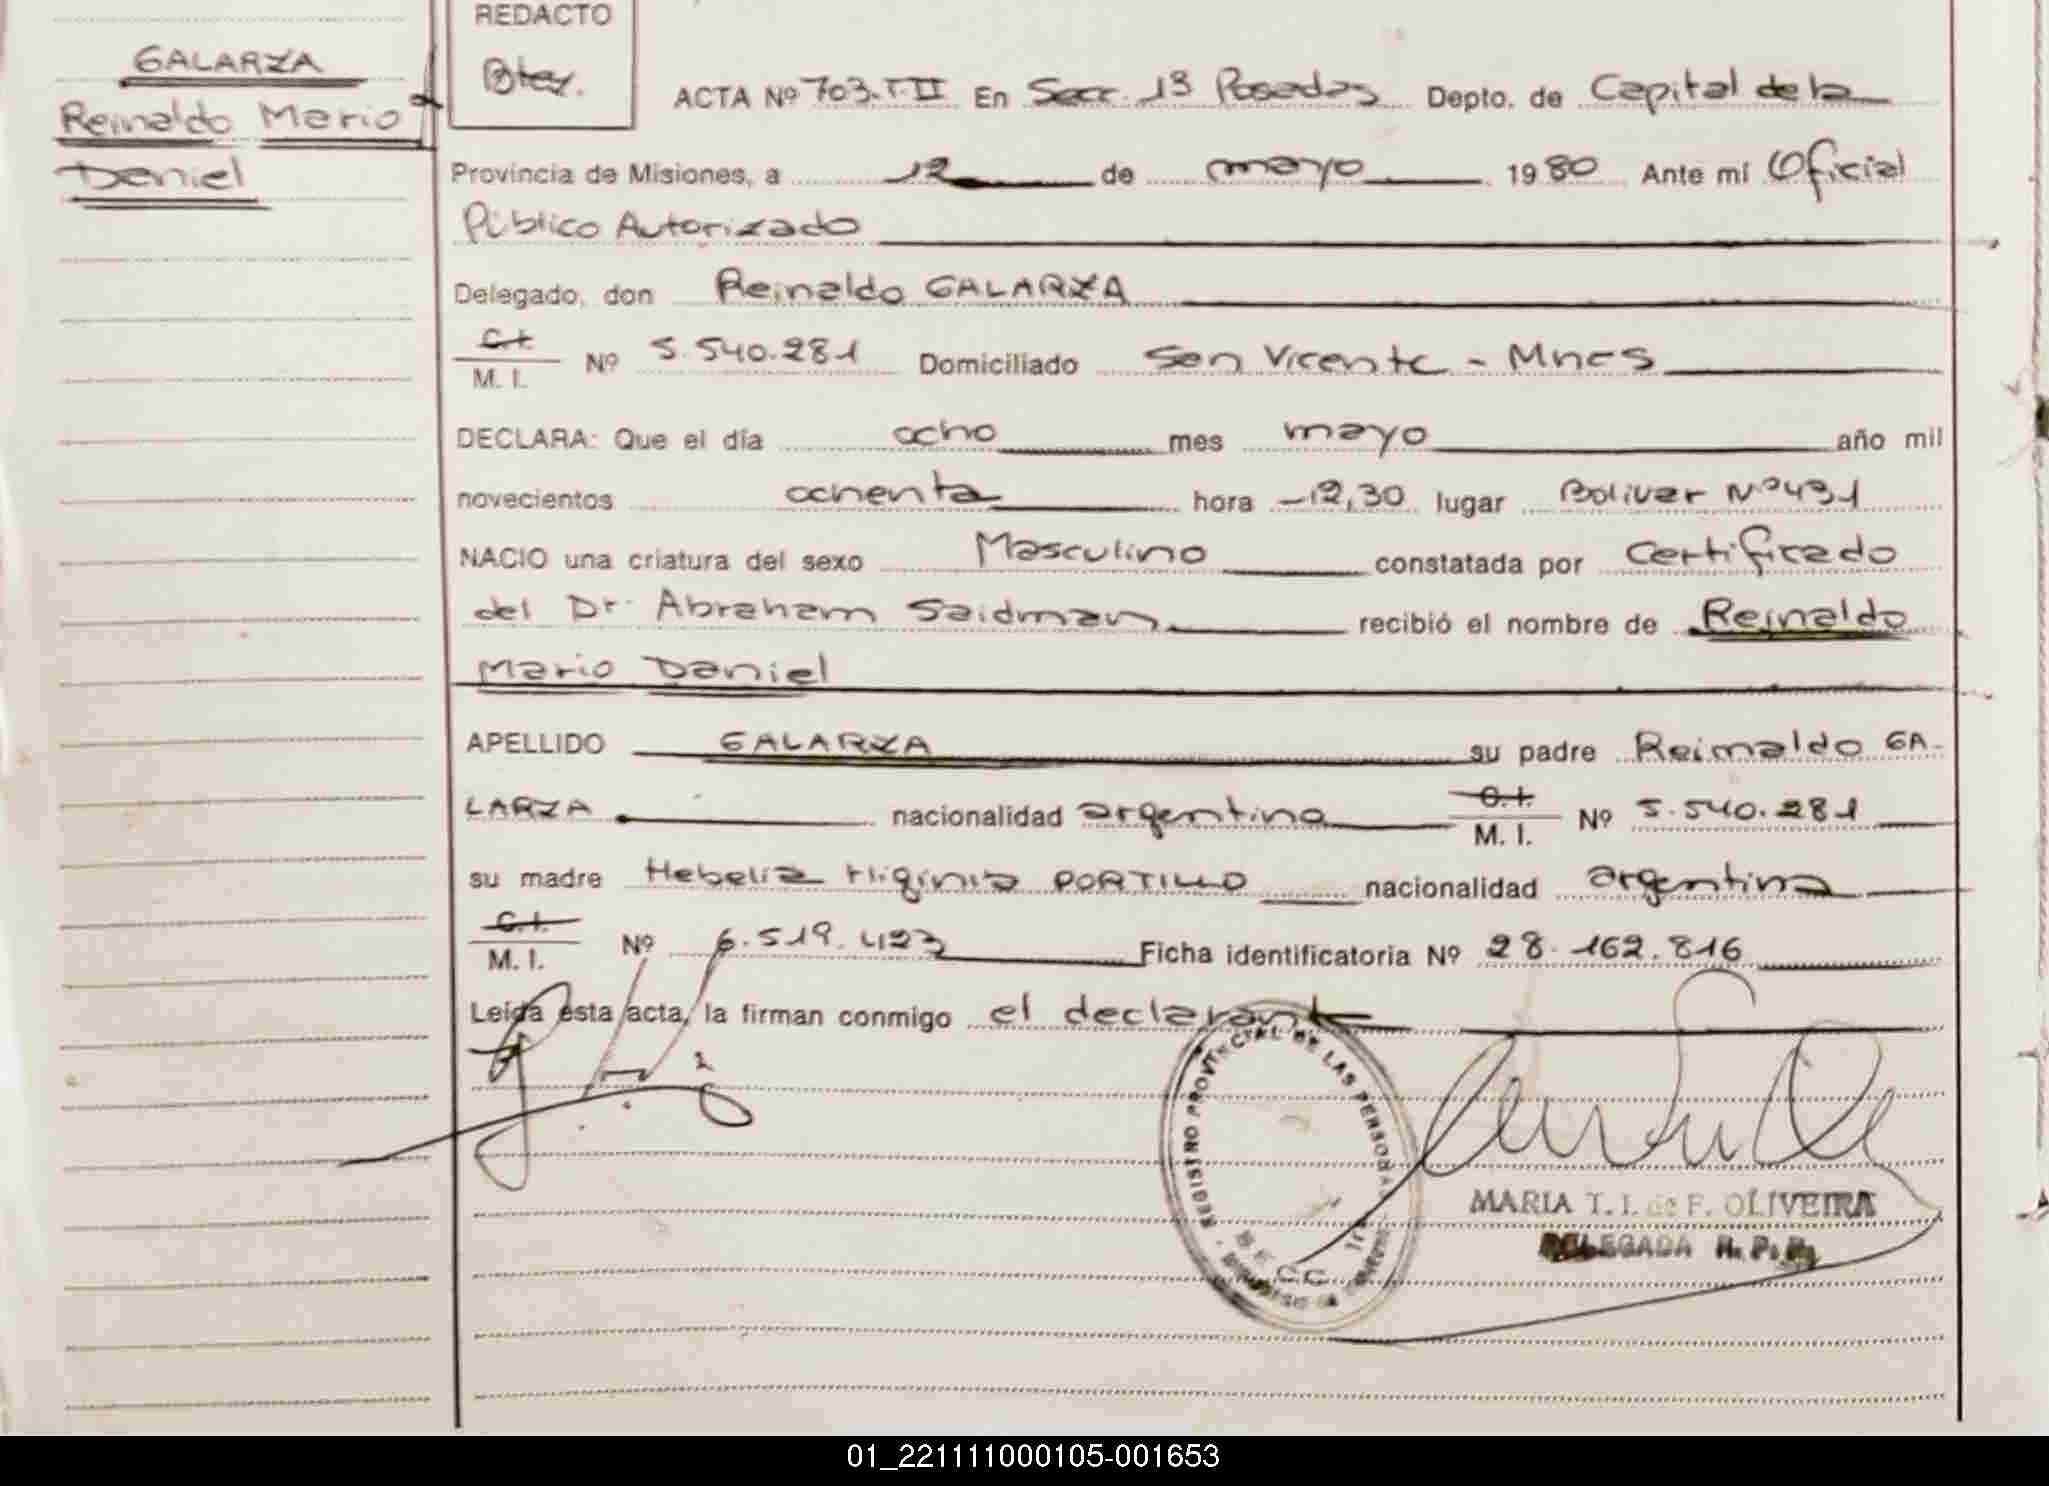 REDACTO
GALARZA
Reinaldo Mario
Daniel
ACTA Nº 703.T.II En Secc. 13 Posadas Depto. de Capital de la
Provincia de Misiones, a 12 de mayo 1980 Ante mí Oficial
Público Autorizado
Delegado, don Reinaldo GALARZA
C.I.
M. I. Nº 5.540.281 Domiciliado San Vicente - Mnes
DECLARA: Que el día ocho mes mayo año mil
novecientos ochenta hora -12,30 lugar Bolivar Nº 431
NACIO una criatura del sexo Masculino constatada por Certificado
del Dr. Abraham Saidman recibió el nombre de Reinaldo
Mario Daniel
APELLIDO GALARZA su padre Reinaldo GA-
LARZA nacionalidad argentino C.I. M. I. Nº 5.540.281
su madre Hebelia Higinia PORTILLO nacionalidad argentina
C.I.
M. I. Nº 6.519.423 Ficha identificatoria Nº 28.162.816
Leída esta acta, la firman conmigo el declarante
REGISTRO PROVINCIAL DE LAS PERSONAS
MARIA T. I. de F. OLIVEIRA
DELEGADA R. P. P.
01_221111000105-001653